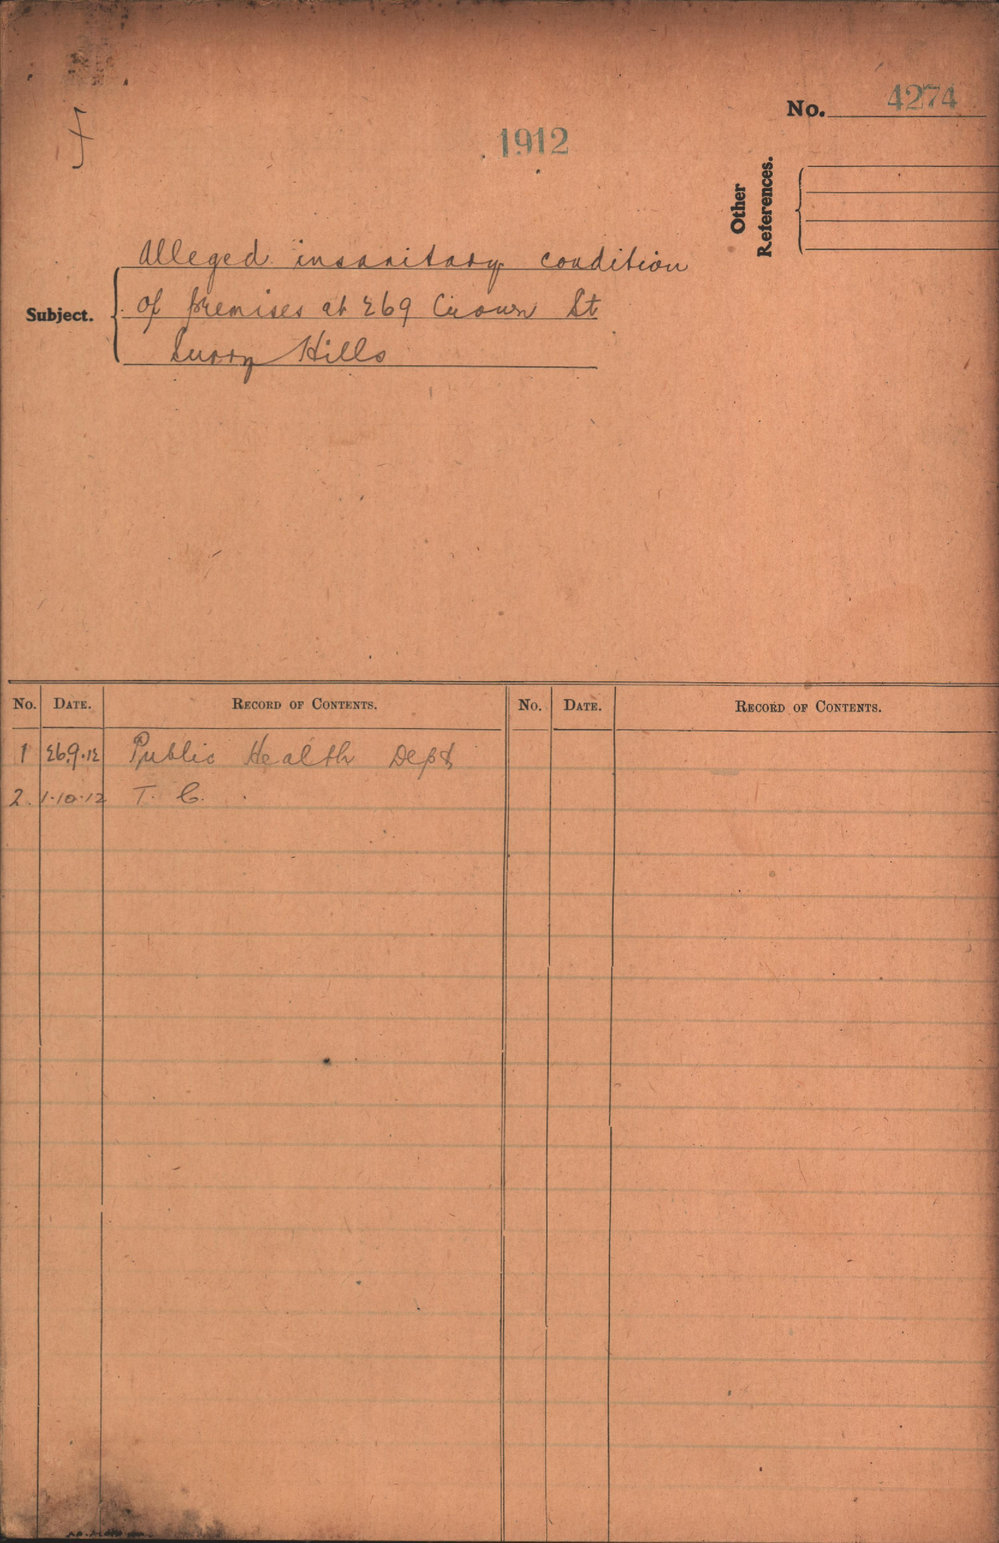 No. 4274
1912
Other
References.
Subject.
Alleged insanitary condition
of premises at 269 Crown St
Surry Hills
No. DATE. RECORD OF CONTENTS. No. DATE. RECORD OF CONTENTS.
1 26.9.12 Public Health Dept
2. 1.10.12 T. C.